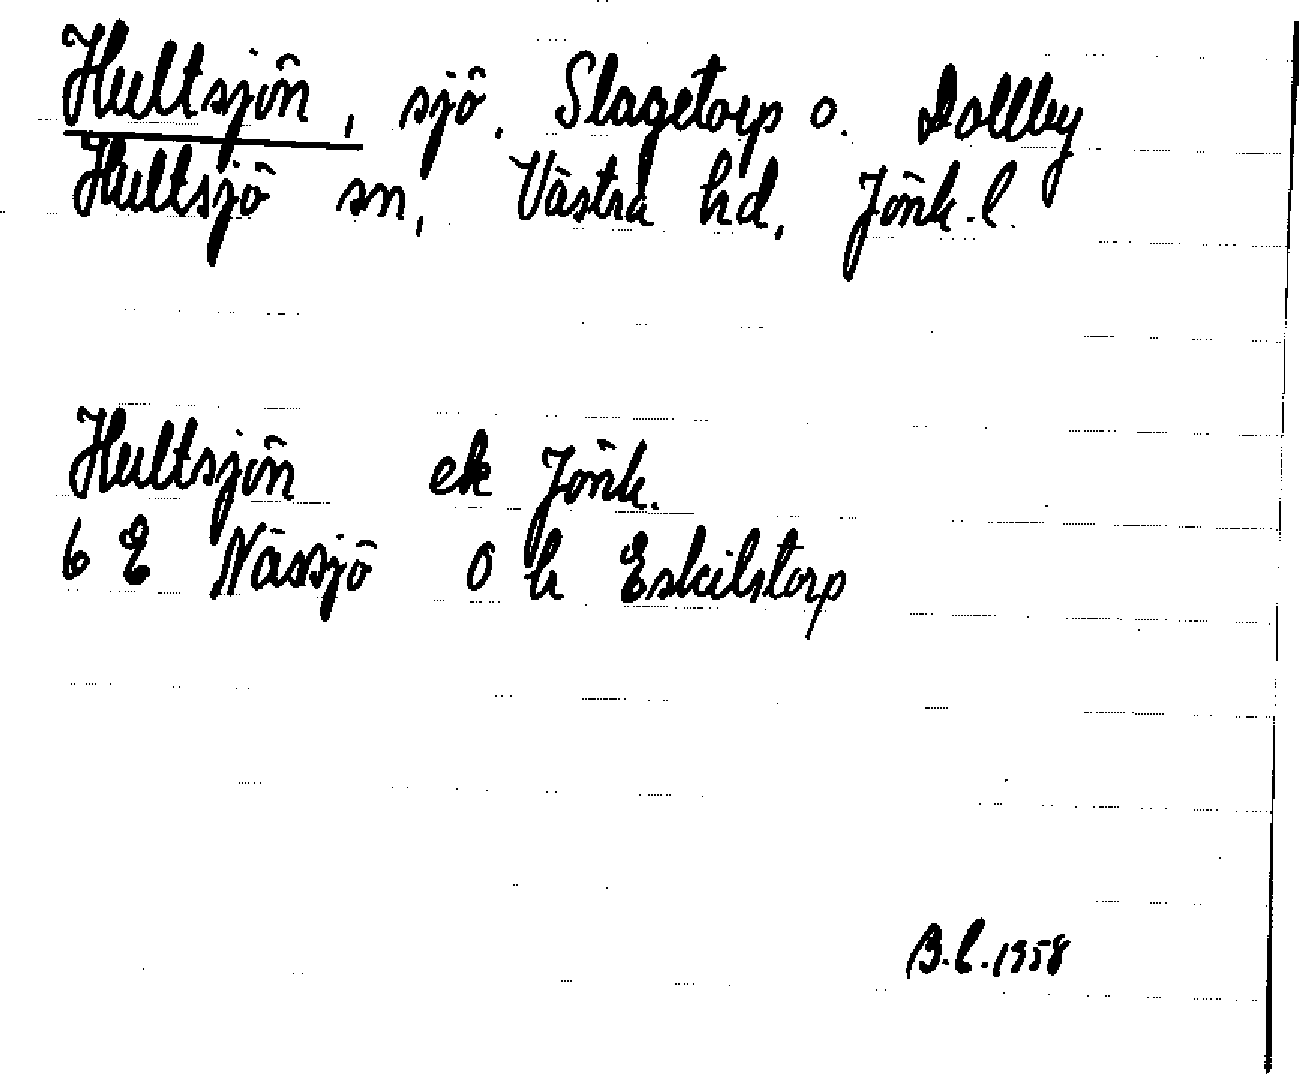 Hultsjön, sjö. Slagetorp o. Dallby
Hultsjö sn, Västra hd, Jönk.l.
Hultsjön ek Jönk.
6 E Nässjö 0 h Eskilstorp
B.L.1958